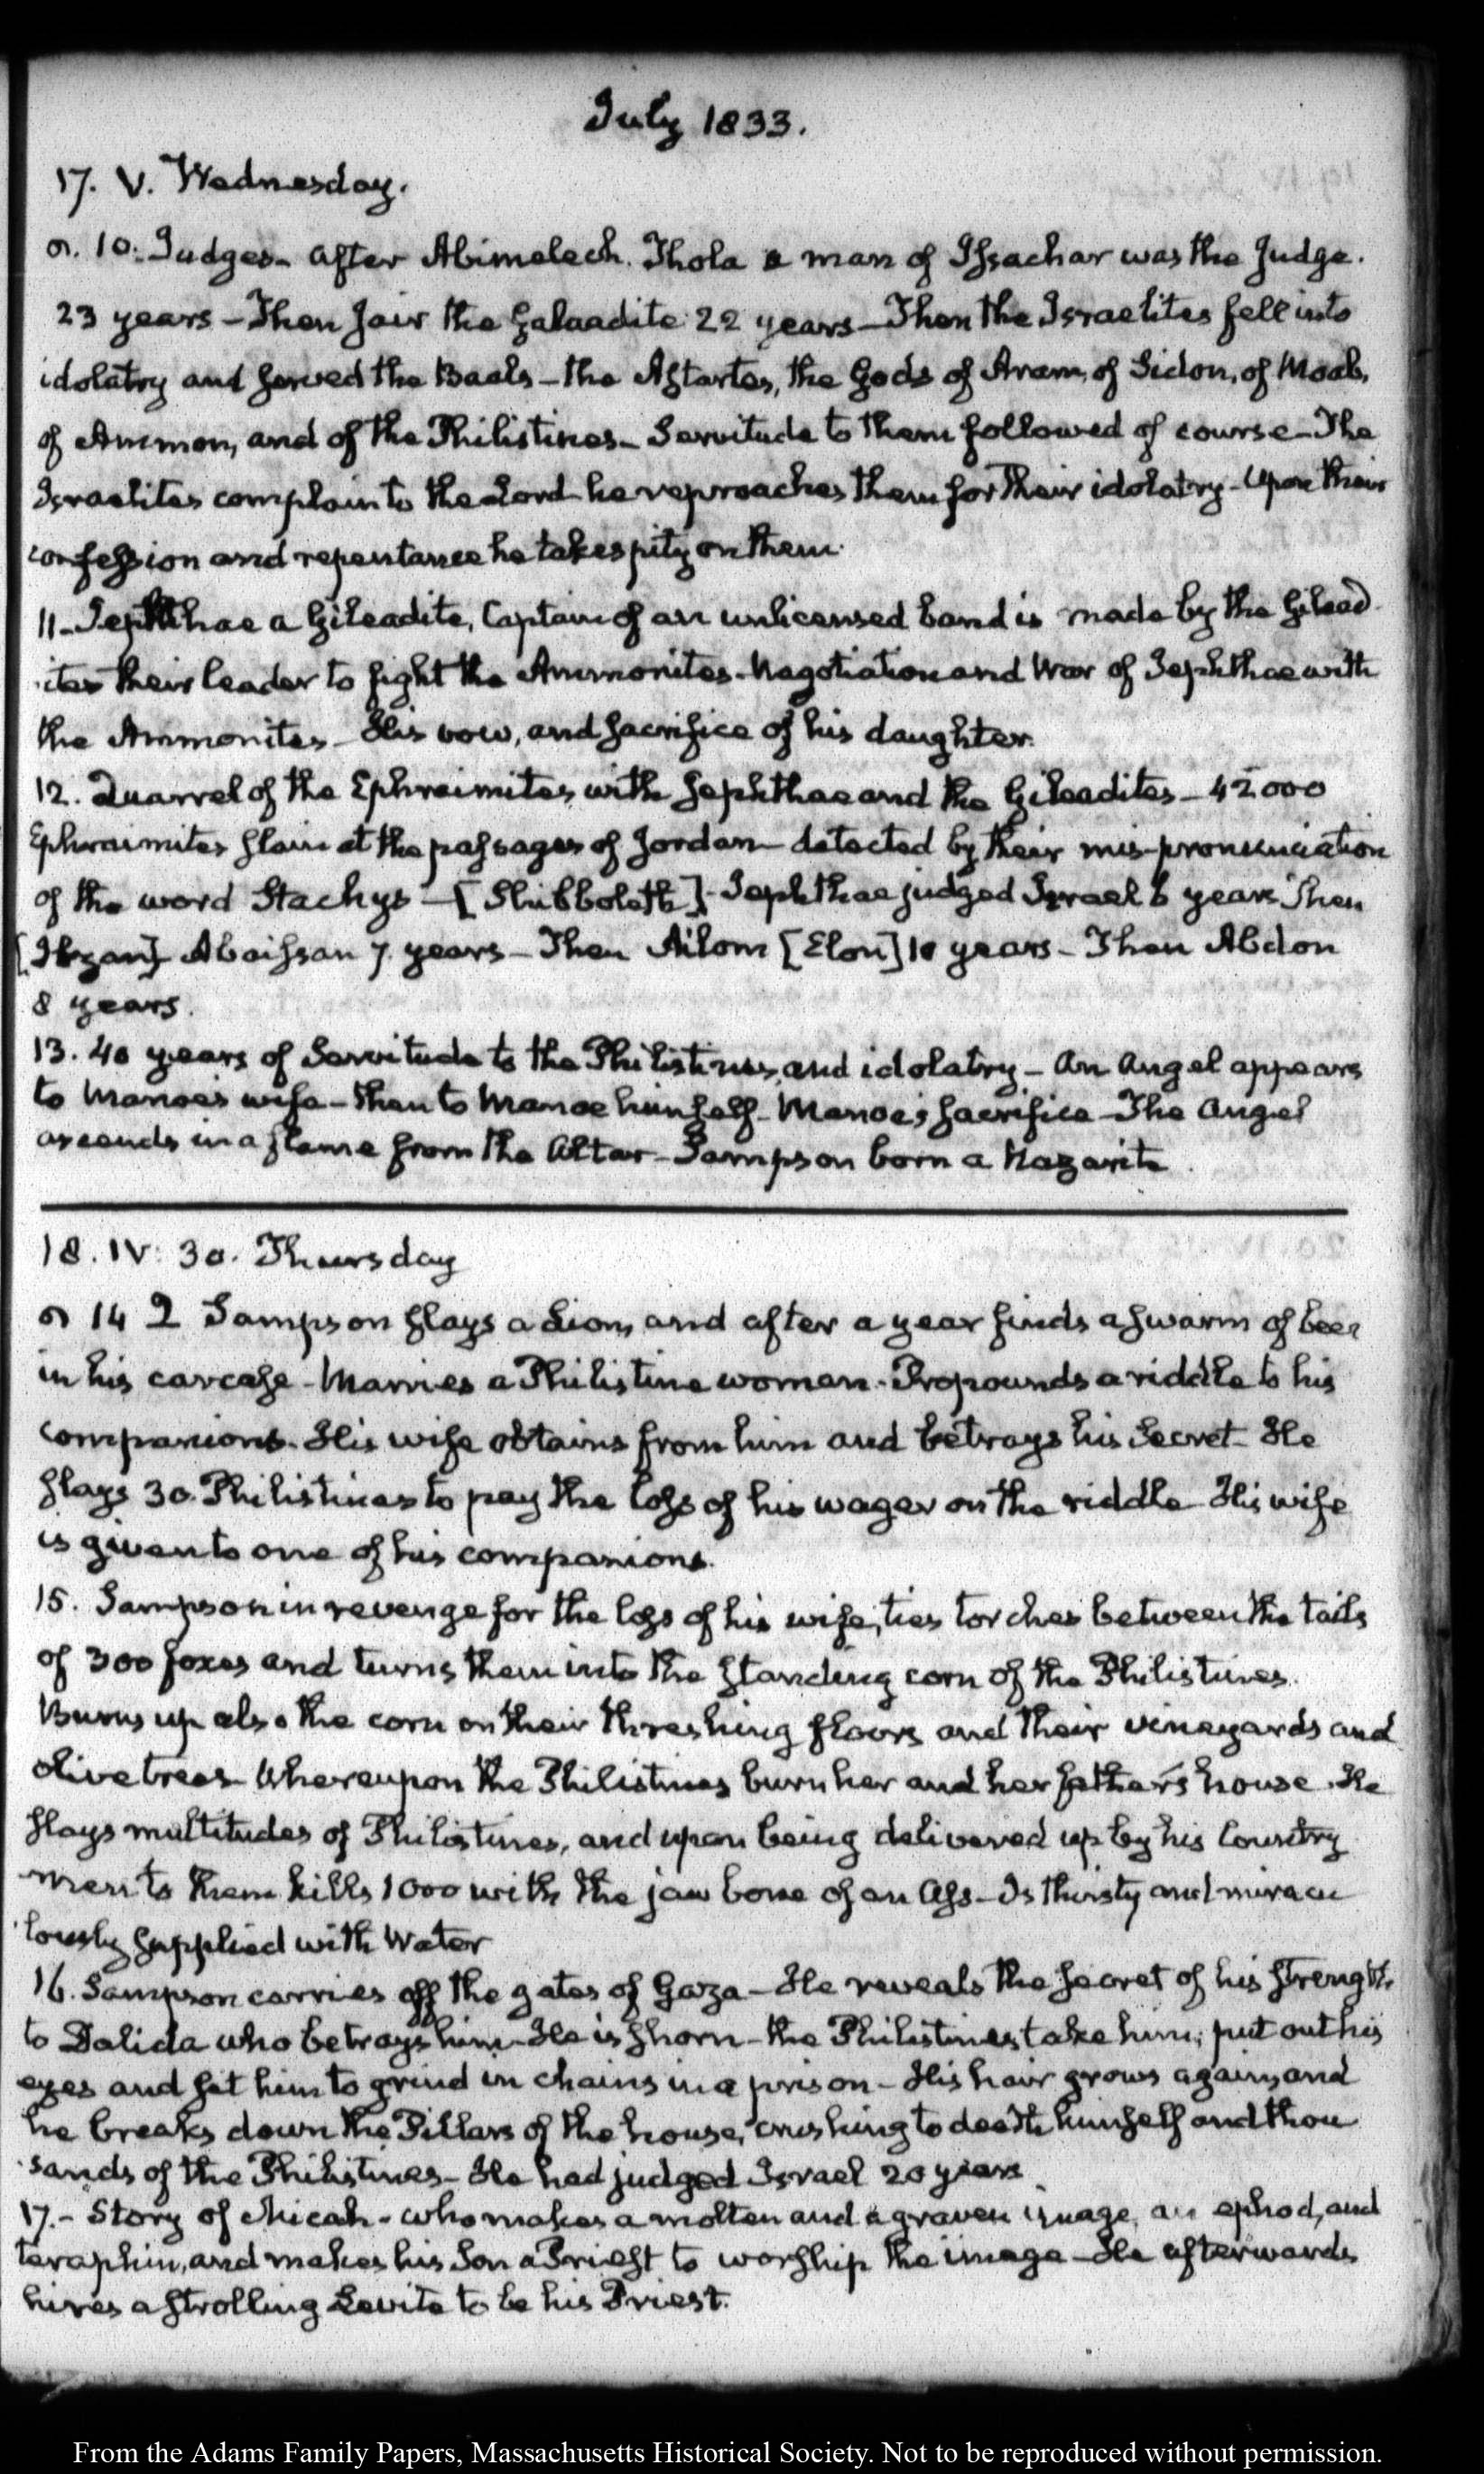 July 1833.
17. V. Wednesday.
10. Judges – After Abimelech. Thola a man of Issachar was the Judge.
23 years – Then Jair the Galaadite 22 years – Then the Israelites fell into
idolatry and served the Baals – the Astartes, the Gods of Aram, of Sidon, of Moab,
of Ammon, and of the Philistines – Servitude to them followed of course – The
Israelites complain to the Lord – he reproaches them for their idolatry – Upon their
confession and repentance he takes pity on them.
11 – Jephthae a Gileadite, Captain of an unlicensed band is made by the Gilead
ites their leader to fight the Ammonites – Nagotiation and War of Jephthae with
the Ammonites – His vow, and sacrifice of his daughter.
12. Quarrel of the Ephraimites with Jephthae and the Gileadites – 42000
Ephraimites slain at the passages of Jordan – detected by their mis-pronunciation
of the word Stachys – [Shibboleth] – Jephthae judged Israel 6 years Then
[Ibzan] Abaissan 7 years – Then Ailom [Elon] 10 years – Then Abdon
8 years.
13. 40 years of Servitude to the Philistines, and idolatry – An Angel appears
to Manoe's wife – then to Manoe himself – Manoe's sacrifice – The Angel
ascends in a flame from the Altar – Sampson born a Nazarite.
18. IV: 30. Thursday
14 Sampson slays a Lion, and after a year finds a swarm of bees
in his carcase – Marries a Philistine woman – Propounds a riddle to his
companions – His wife obtains from him and betrays his Secret – He
slays 30 Philistines to pay the loss of his wager on the riddle – His wife
is given to one of his companions.
15. Sampson in revenge for the loss of his wife, ties torches between the tails
of 300 foxes and turns them into the standing corn of the Philistines.
Burns up also the corn on their threshing floors and their vineyards and
olive trees – Whereupon the Philistines burn her and her father's house. He
slays multitudes of Philistines, and upon being delivered up by his Country
men to them kills 1000 with the jaw bone of an Ass – Is thirsty and miracu
lously supplied with Water
16. Sampson carries off the gates of Gaza – He reveals the secret of his strength
to Dalida who betrays him – He is shorn – the Philistines take him, put out his
eyes and set him to grind in chains in a prison – His hair grows again, and
he breaks down the Pillars of the house, crushing to death himself and thou
sands of the Philistines – He had judged Israel 20 years
17. – Story of Micah – who makes a molten and a graven image, an ephod, and
teraphin, and makes his Son a Priest to worship the image – He afterwards
hires a strolling Levite to be his Priest.
From the Adams Family Papers, Massachusetts Historical Society. Not to be reproduced without permission.